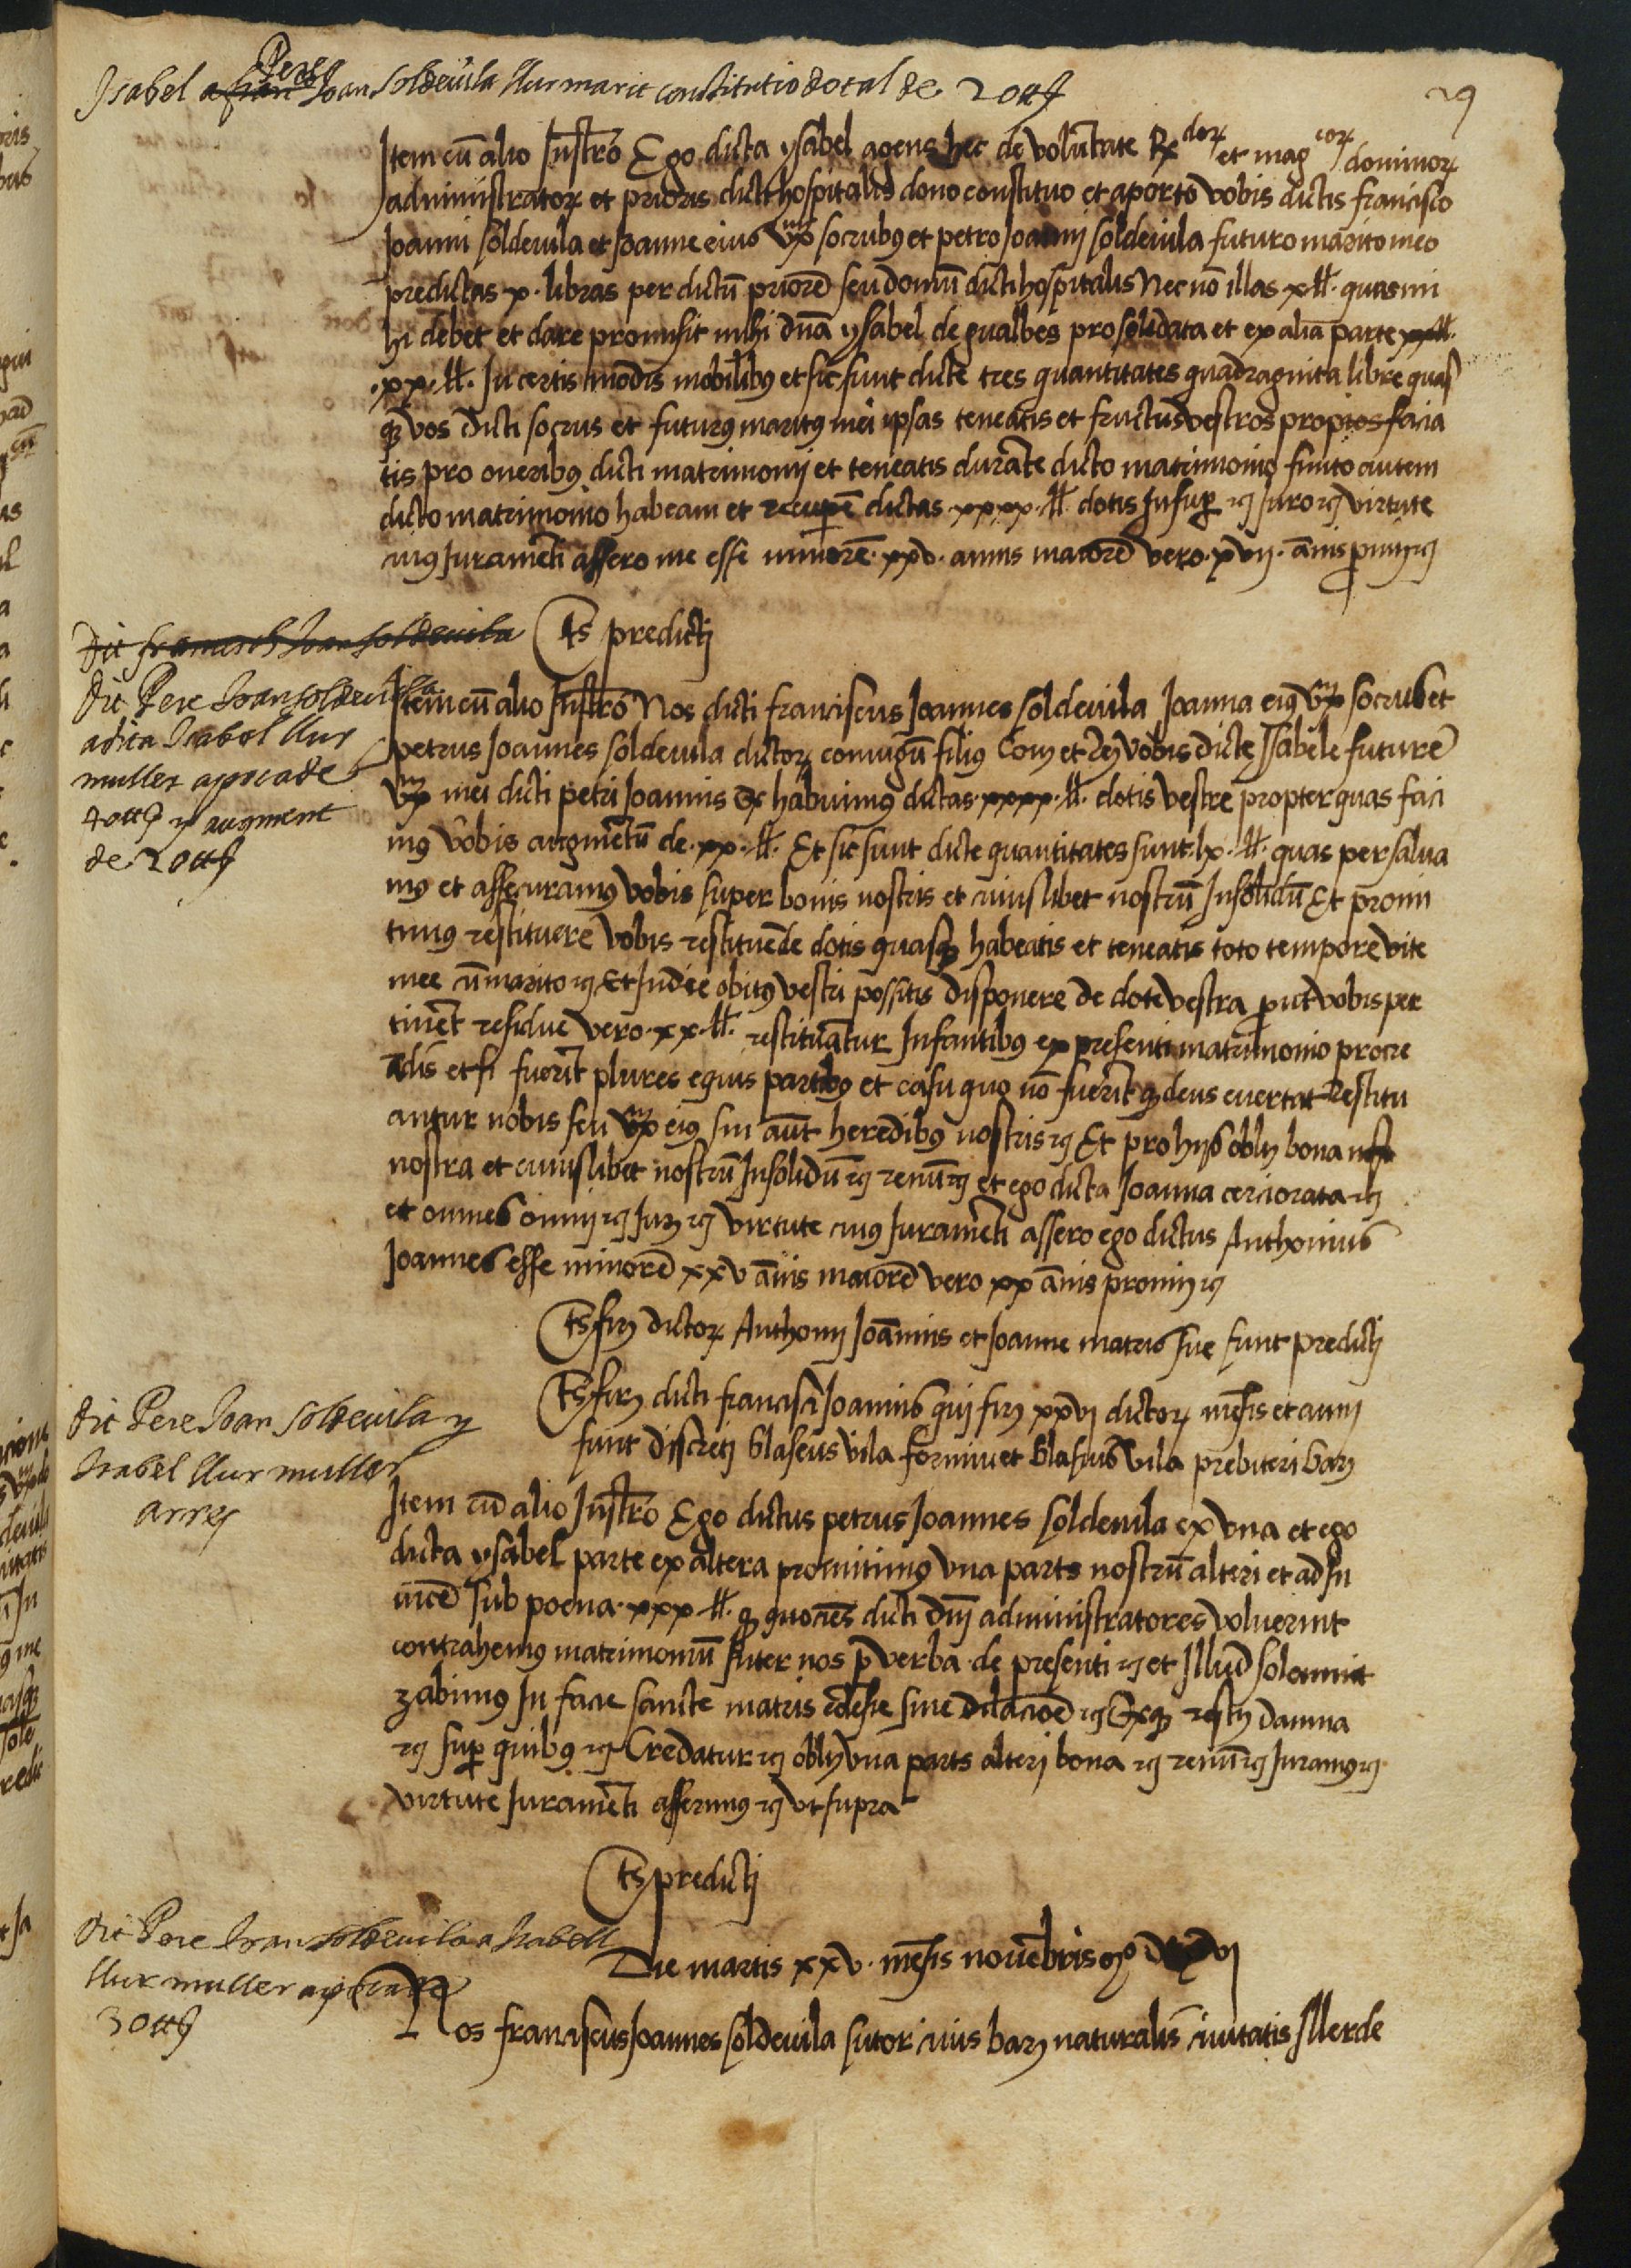 Isabel a ~~fran~~ Pere Joan Soldevila llur marit constitutio dotal de 20 ₶
29
Item cū alio Instrō Ego dicta ysabel agens hec de volūtate Rdorꝝ et magcorꝝ dominorꝝ
administratorꝝ et prioris dicti hospitalis dono constituo et aporto vobis dictis francisco
Joanni soldevila et Joanne eius vxī socrubꝰ et petro Joannj soldevila futuro marito meo
predictas x. libras per dictū priorē seu domū dicti hospitalis Nec nō illas x ll. quas mi
hi debet et dare promisit mihi dn̄a ysabel de gualbes pro solidata et ex alia parte ~~xx ll.~~
.xx. ll. In certis modis mobilibꝰ et sic sunt dicte tres quantitates quadraginta libre quas
qꝫ vos dicti socrus et futurꝰ maritꝰ mei ipsas teneatis et fructus vestros propios facia
tis pro oneribꝰ dicti matrimonij et teneatis durāte dicto matrimonio finito autem
dicto matrimonio habeam et recuperē dictas .xxxx. ll. dotis Insuꝑ ꝛcͣ Juro ꝛcͣ virtute
cuiꝰ Juramēti assero me esse minorē .xxv. annis maiorē vero .xvii. ānis promij ꝛcͣ
~~Dit francesch Joan soldevila~~
Ts predictj
Dit Pere Joan soldevila
a dita Isabel llur
muller apoca de
40 ₶ y augment
de 20 ₶
Item cū alio Instrō Nos dicti franciscus Joannes soldevila Joanna eiꝰ vxī socrus et
petrus Joannes soldevila dictorꝝ coniugū filiꝰ Com et Rem vobis dicte Isabele future
vxī mei dicti petri Joannis qꝫ habuimꝰ dictas .xxxx. ll. dotis vestre propter quas faci
mꝰ vobis augmētū de .xx. ll. Et sic sunt dicte quantitates sunt .lx. ll. quas per salva
mꝰ et assecuramꝰ vobis super bonis nostris et cuiuslibet nostrū Insolidū Et promi
timꝰ restituere vobis restituēde dotis quasqꝫ habeatis et teneatis toto tempore vite
mee cū marito ꝛcͣ Et In die obitꝰ vestri possitis disponere de dote vestra prout vobis per
tinēt residue vero .xx. ll. restituātur Infantibꝰ ex presenti matrimonio procre
adis et si fuerīt plures equis partibꝰ et casu quo nō fuerīt qꝫ deus evertat Restitu
antur nobis seu vxī eiꝰ sui aūt heredibꝰ nostris ꝛcͣ Et pro hijs oblij bona ~~nost~~
nostra et cuiuslibet nostrū Insolidū ꝛcͣ renū ꝛcͣ et ego dicta Joanna cerciorata ꝛcͣ
et omnes omnij ꝛcͣ Jur ꝛcͣ virtute cuiꝰ Juramēti assero ego dictus Anthonius
Joannes esse minorē xxv ānis maiorē vero xx ānis promij ꝛcͣ
Ts firꝫ dictorꝝ Anthonij Joānnis et Joanne matris sue sunt predictj
Dit Pere Joan soldevila y
Isabel llur muller
arres
Ts firꝫ dicti francisci Joannis qui firꝫ xxvj dictorꝝ mēsis et annj
sunt discretj blaseus vila et blasius vila prebiteri barꝫ
Item cū alio Instrō Ego dictus petrus Joannes soldevila ex vna et ego
dicta ysabel parte ex altera promitimꝰ vna parts nostrū alteri et ad In
uicē sub poena .xxx. ll. qꝫ quociēs dicti dn̄j administratores voluerint
contrahemꝰ matrimoniū Inter nos ꝑ verba de presenti ꝛcͣ et Illud solemnit
zabimus In facie sancte matris eclesie sine dilacioē ꝛcͣ Exqꝫ restij damna
ꝛcͣ suꝑ quibꝰ ꝛcͣ Credatur ꝛcͣ oblij vna parts alterj bona ꝛcͣ renū ꝛcͣ Juramꝰ ꝛcͣ
virtute Juramēti asserimꝰ ꝛcͣ vt supra
Ts predictj
Dit Pere Joan soldevila a Isabell
llur muller apoca de
30 ₶
Die martis xxv. mēsis novēbris
Nos franciscus Joannes soldevila sutor civis barꝫ naturalis civitatis Illerde